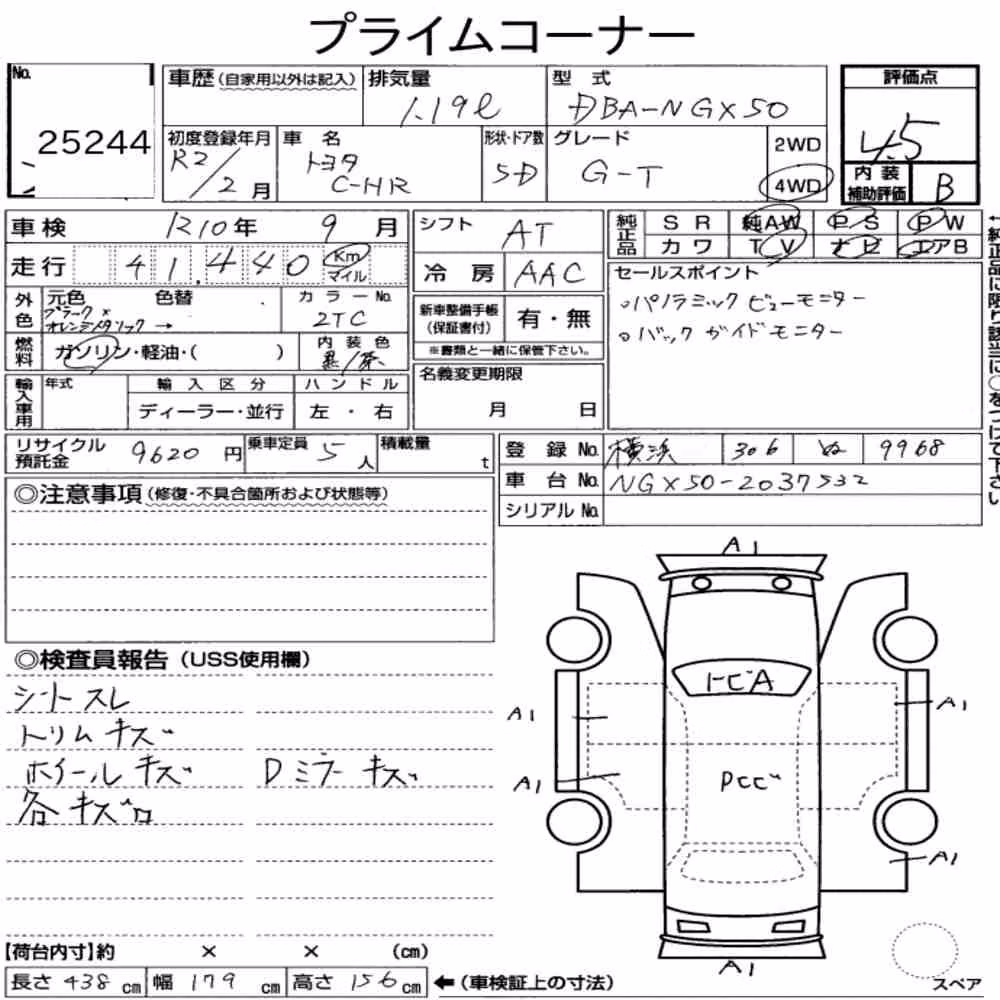 プライムコーナー
No.
25244
車歴(自家用以外は記入)
排気量
1.19ℓ
型式
DBA-NGX50
評価点
4.5
初度登録年月
R2/2月
車名
トヨタ
C-HR
形状・ドア数
5D
グレード
G-T
2WD
4WD
内装
補助評価
B
車検 R10年 9月
走行 41,440 Km
マイル
シフト AT
冷房 AAC
純正品
SR 純AW PS PW
カワ TV ナビ エアB
←純正品に限り該当に○をつけて下さい
外色
元色 色替
ブラック×
オレンジメタリック →
カラーNo.
2TC
燃料
ガソリン・軽油・( )
内装色
黒/茶
新車整備手帳
(保証書付)
有・無
※書類と一緒に保管下さい。
セールスポイント
○パノラミックビューモニター
○バックガイドモニター
輸入車用
年式
輸入区分
ディーラー・並行
ハンドル
左・右
名義変更期限
月 日
リサイクル
預託金
9620円
乗車定員 5人
積載量 t
登録No. 横浜 306 ぬ 9968
車台No. NGX50-2037532
シリアルNo.
◎注意事項(修復・不具合箇所および状態等)
◎検査員報告(USS使用欄)
シートスレ
トリムキズ
ホイールキズ Dミラーキズ
各キズロ
A1
トビA
A1
A1
A1
Pこビ
A1
A1
スペア
【荷台内寸】約 × × (cm)
長さ 438cm 幅 179cm 高さ 156cm ←(車検証上の寸法)